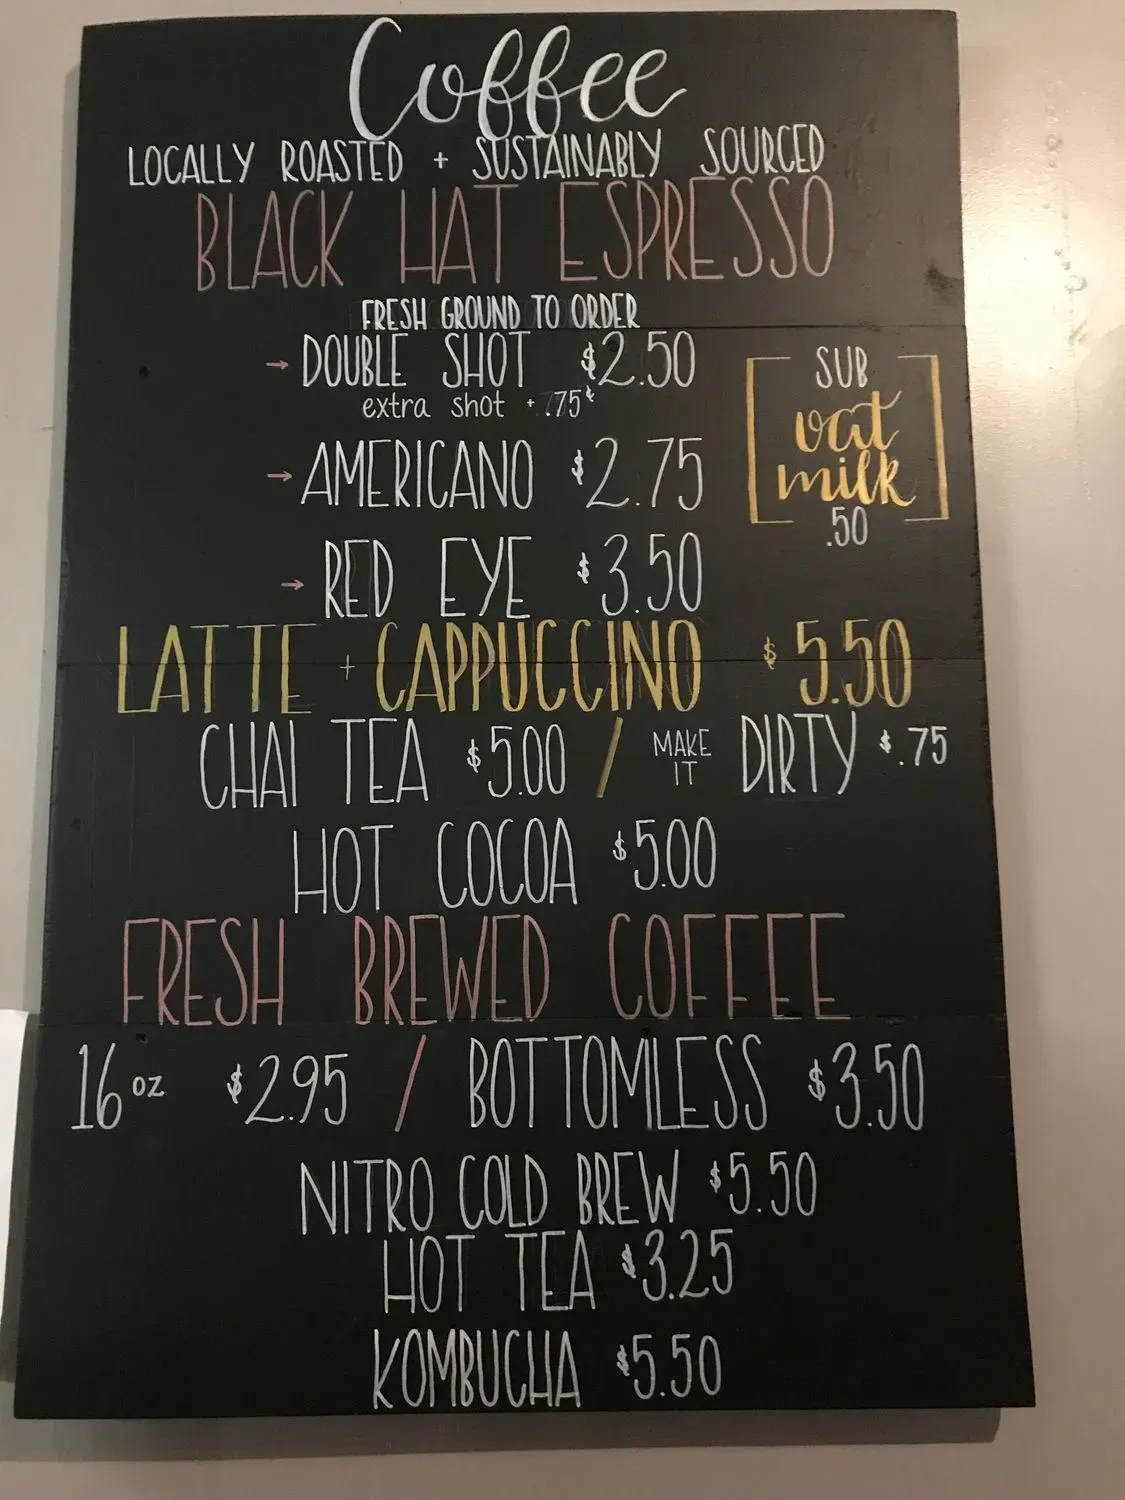 Coffee
LOCALLY ROASTED + SUSTAINABLY SOURCED
BLACK HAT ESPRESSO
FRESH GROUND TO ORDER
→ DOUBLE SHOT $2.50
extra shot + .75¢
→ AMERICANO $2.75
→ RED EYE $3.50
SUB
oat
milk
.50
LATTE + CAPPUCCINO $5.50
CHAI TEA $5.00 / MAKE IT DIRTY $.75
HOT COCOA $5.00
FRESH BREWED COFFEE
16 oz $2.95 / BOTTOMLESS $3.50
NITRO COLD BREW $5.50
HOT TEA $3.25
KOMBUCHA $5.50